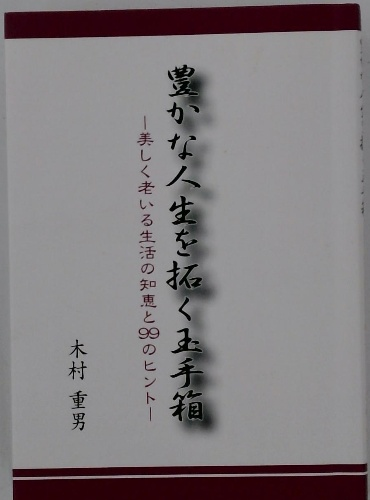 豊かな人生を拓く玉手箱
―美しく老いる生活の知恵と99のヒント―
木村 重男